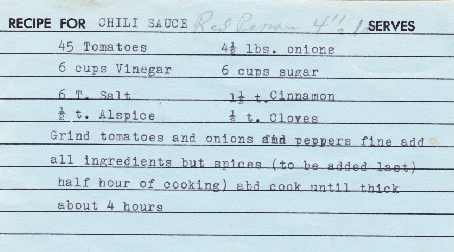 RECIPE FOR CHILI SAUCE Red 4" SERVES
45 Tomatoes 4½ lbs. onions
6 cups Vinegar 6 cups sugar
6 T. Salt 1½ t. Cinnamon
½ t. Alspice ½ t. Cloves
Grind tomatoes and onions and peppers fine add
all ingredients but spices (to be added last)
half hour of cooking) abd cook until thick
about 4 hours